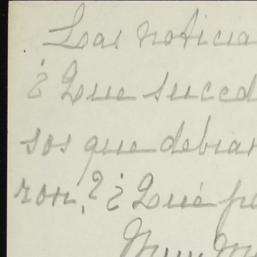 Las noticia
¿Que suced
sos que debian
ron,? ¿Qué pa
Muy